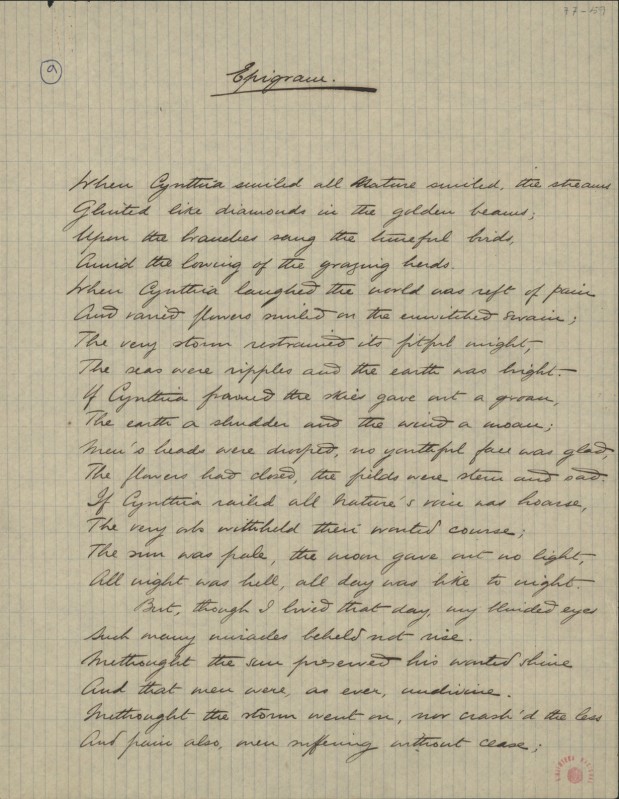 77-59
9
Epigram.
When Cynthia smiled all Nature smiled, the streams
Glinted like diamonds in the golden beams;
Upon the branches sang the tuneful birds,
Amid the lowing of the grazing herds.
When Cynthia laughed the world was reft of pain
And varied flowers smiled on the enwitched swain;
The very storm restrained its fitful might,
The seas were ripples and the earth was bright.—
If Cynthia frowned the skies gave out a groan,
The earth a shudder and the wind a moan;
Men's heads were drooped, no youthful face was glad,
The flowers had closed, the fields were stern and sad.
If Cynthia railed all Nature's voice was hoarse,
The very orbs withheld their wonted course;
The sun was pale, the moon gave out no light,
All night was hell, all day was like to night.
But, though I lived that day, my blinded eyes
Such many miracles beheld not rise.
Methought the sun preserved his wonted shine
And that men were, as ever, undivine.
Methought the storm went on, nor crash'd the less
And pain also, men suffering without cease;